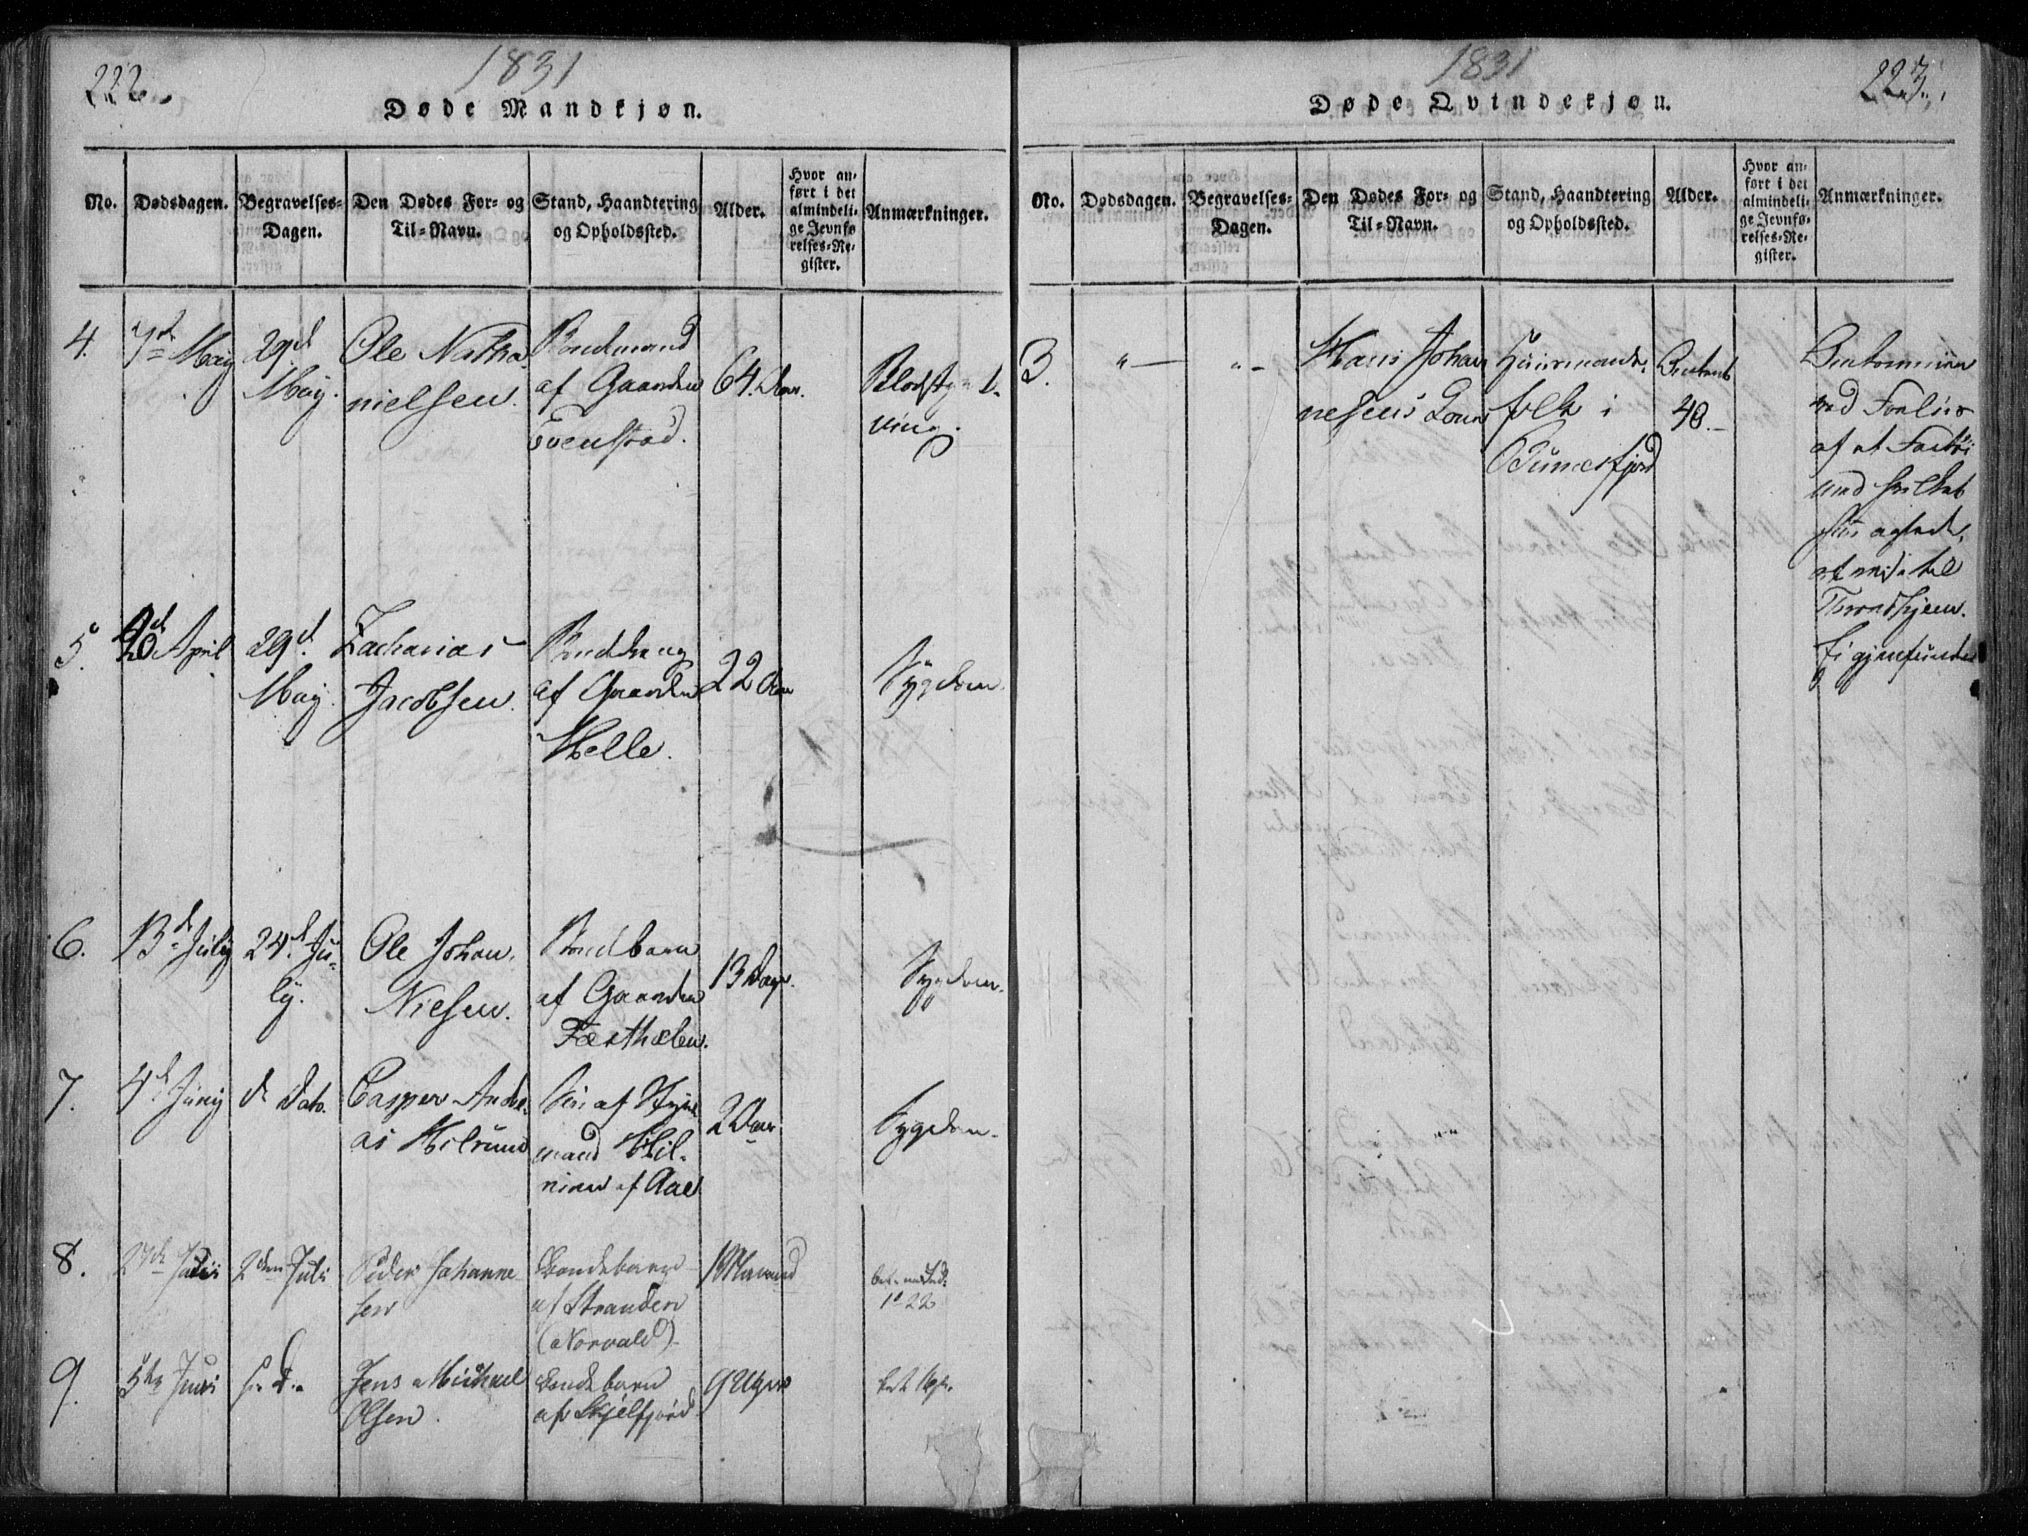 222.
1831
Døde Mandkjøn.
No.
Dødsdagen.
Begravelses-
Dagen.
Den Dødes For- og
Til-Navn.
Stand, Haandtering
og Opholdssted.
Alder.
Hvor an-
ført i det
almindeli-
ge Jevnfø
relses-Re-
gister.
Anmærkninger.
4.
7de May
29d
May.
Ole Natha
nielsen.
Bondmand
af Gaarden
Evenstad.
64 Aar.
Blodstyrt-
ning.
5.
April
29d.
May.
Zacharias
Jacobsen.
af Gaarden
Melle.
22 Aar
Sygdom.
6.
13de July
24d Ju-
ly.
Ole Johan
Nielsen.
Bondbarn
af Gaarden
Færthælen.
13 Dage.
Sygdom.
7.
4d Juny
d. Dato.
Casper Andre-
as Hilrund
Søn af
mand
af
2 Aar
Sygdom.
8.
27de
2den Juli
Peder Johanne
sen
Bondebarn
af Stranden
(Norvald)
1 Maaned
9.
5te Juni
Jens Michael
Olsen.
Bondebarn
af Skjelfjord
9 Uger
1831
Døde Qvindekjøn.
223.
No.
Dødsdagen.
Begravelses-
Dagen.
Den Dødes For- og
Til-Navn.
Stand, Haandtering
og Opholdssted.
Alder.
Hvor an-
ført i det
almindeli-
ge Jevnfø-
relses-Re-
gister.
Anmærkninger.
3.
" —
" -
Hans Johan
nesens Kone
Huusmands-
folk i
Sunnesfjord
Omtrent
40.
Omkommen
ved Forliis
af et Fartøi
med hvilket
hun agtede
at reise til
Throndhjem.
Ei gjenfunden